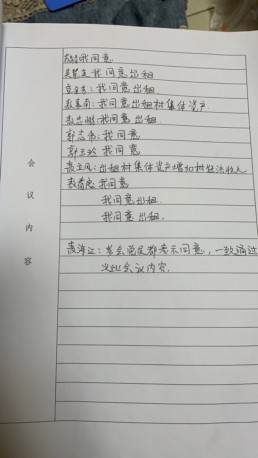 我同意
我同意出租
我同意出租.
我同意出租村集体资产
我同意出租.
郭志伟:我同意
我同意
出租村集体资产增加村经济收入
我同意
我同意出租.
我同意出租.
参会党员都表示同意,一致通过
次此会议内容.
会议内容